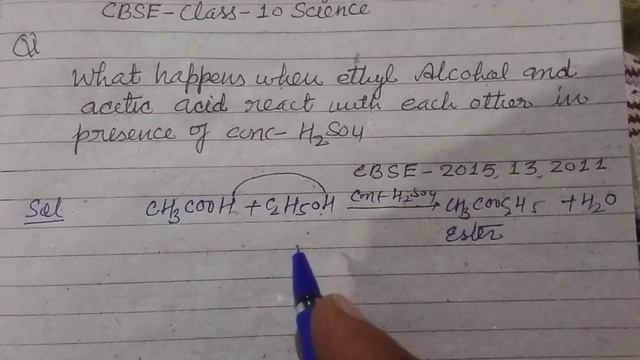 CBSE-Class-10 Science
Q1
What happens when ethyl Alcohol and
acetic acid react with each other in
presence of conc- H2SO4
CBSE-2015, 13, 2011
Sol CH3COOH + C2H5OH conc H2SO4 → CH3COOC2H5 + H2O
Ester